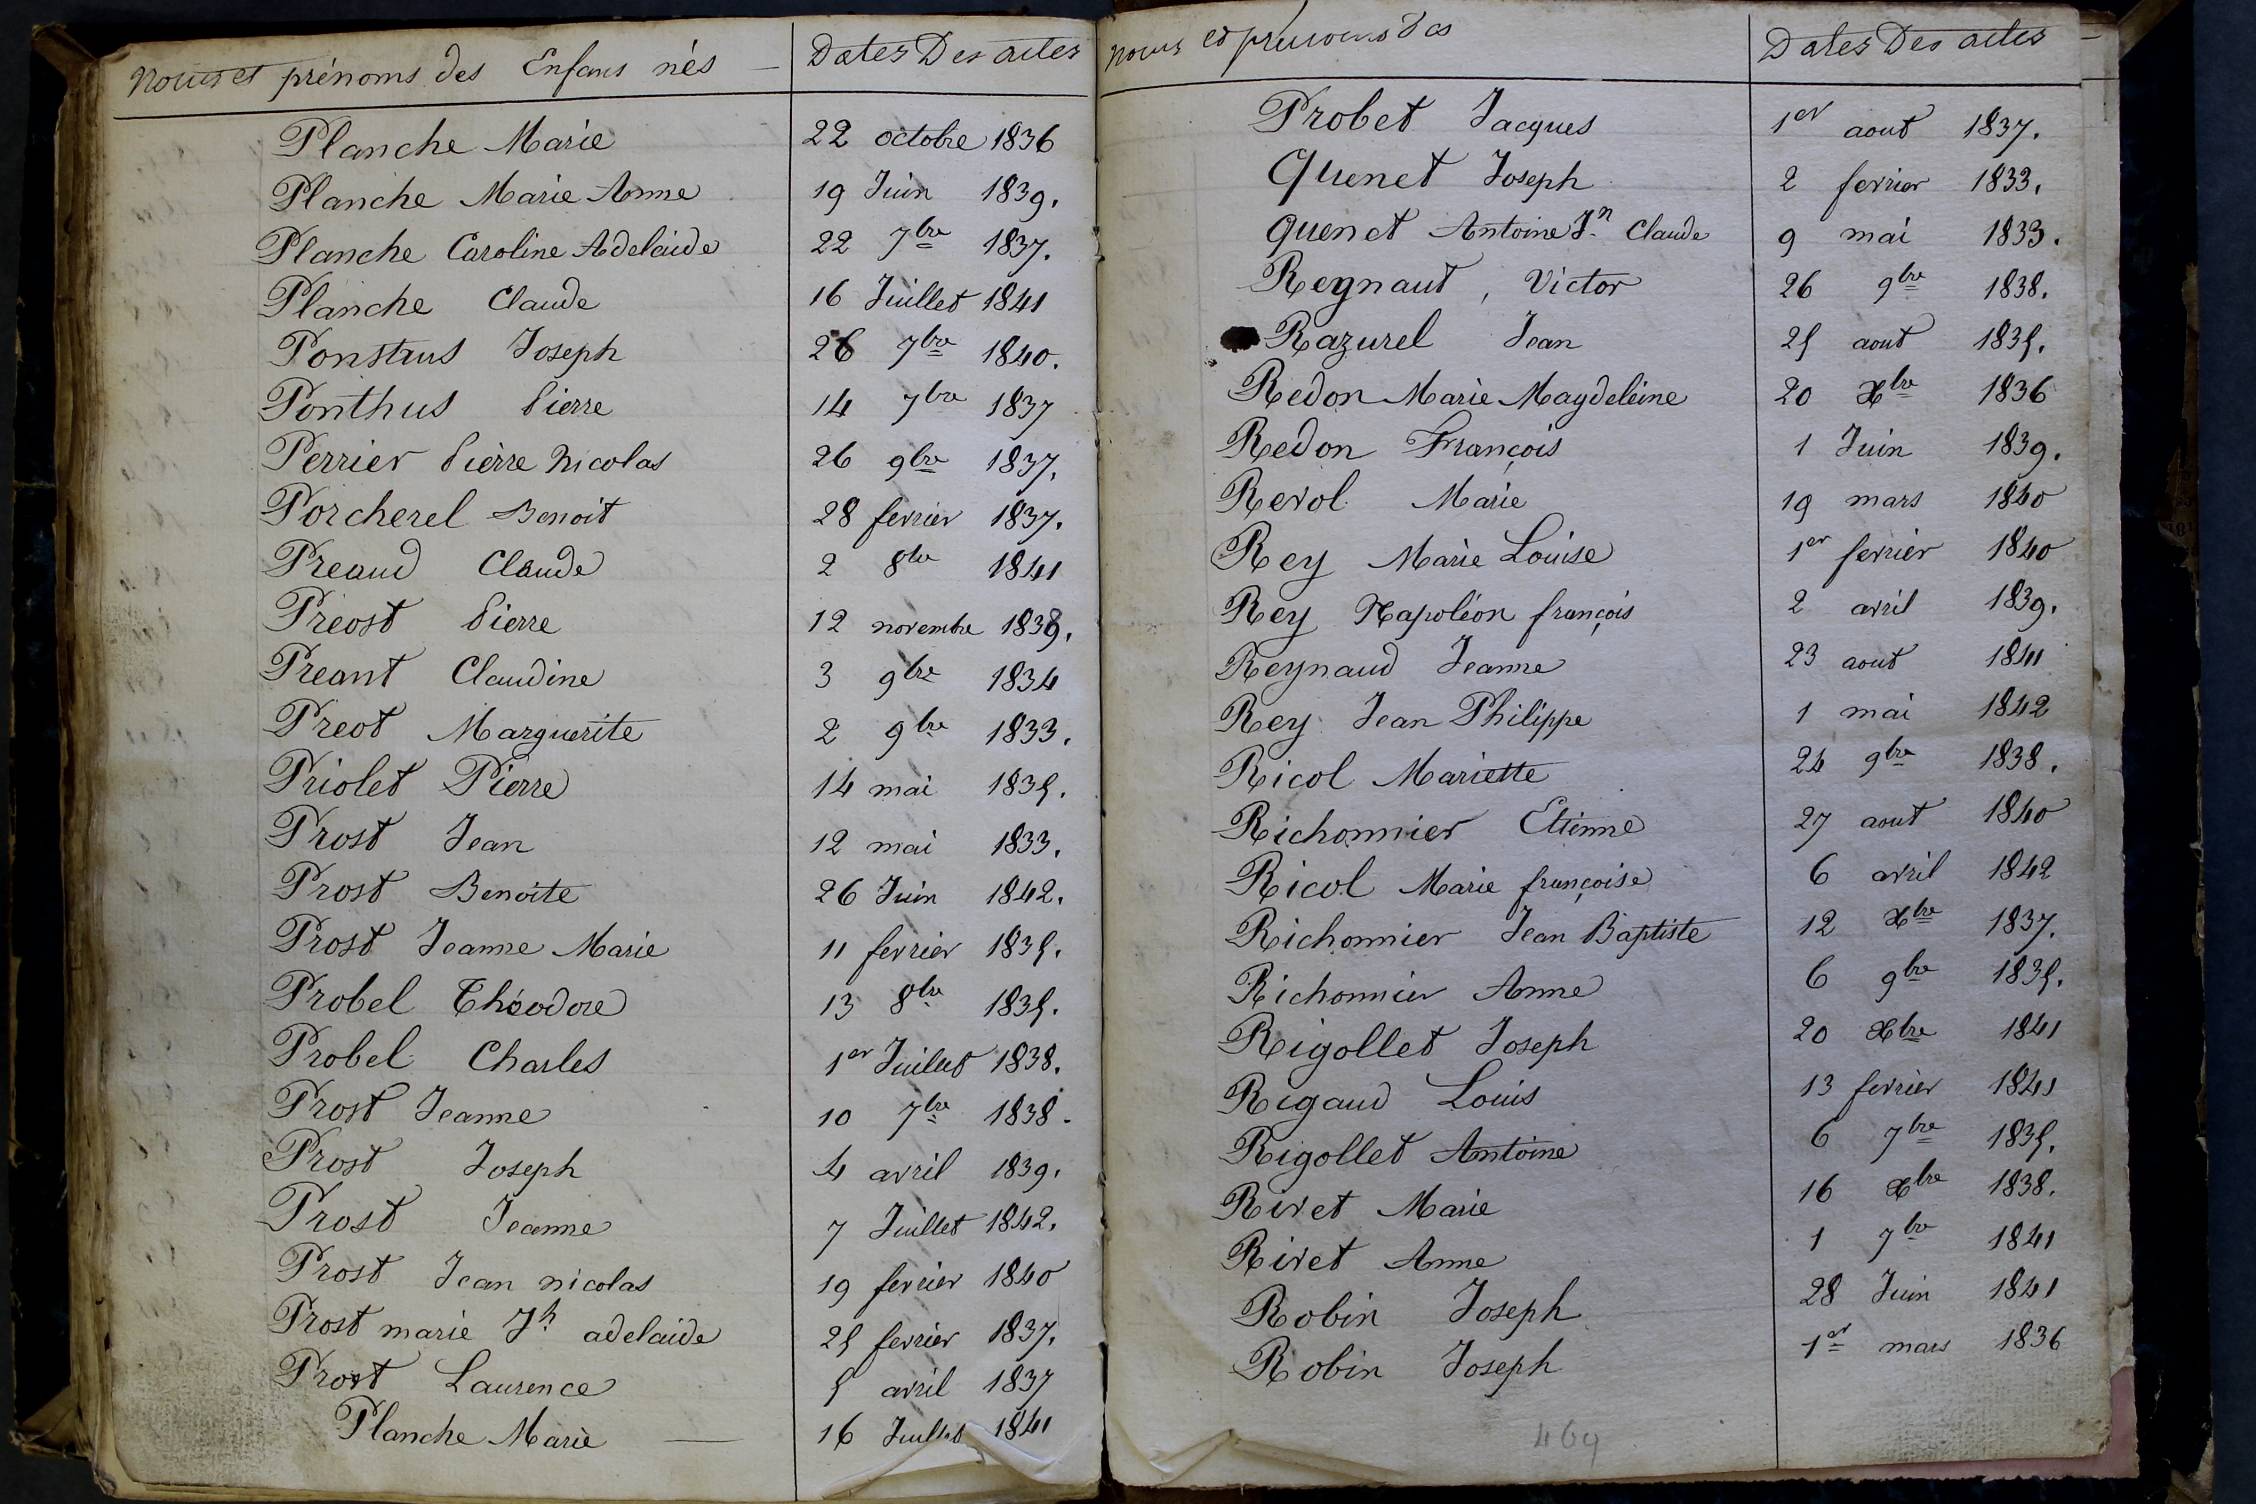 Noms et prénoms des Enfans nés — Dates Des actes
Planche Marie 22 octobre 1836
Planche Marie Anne 19 Juin 1839.
Planche Caroline Adelaide 22 7bre 1837.
Planche Claude 16 Juillet 1841
Ponstus Joseph 26 7bre 1840.
Ponthus Pierre 14 7bre 1837
Perrier Pierre Nicolas 26 9bre 1837.
Porcherel Benoit 28 fevrier 1837.
Preaud Claude 2 8bre 1841
Preost Pierre 12 novembre 1839.
Preant Claudine 3 9bre 1834
Preot Marguerite 2 9bre 1833.
Priolet Pierre 14 mai 1835.
Prost Jean 12 mai 1833.
Prost Benoite 26 Juin 1842.
Prost Jeanne Marie 11 fevrier 1835.
Probel Théodore 13 8bre 1835.
Probel Charles 1er Juillet 1838.
Prost Jeanne 10 7bre 1838.
Prost Joseph 4 avril 1839.
Prost Jeanne 7 Juillet 1842.
Prost Jean nicolas 19 fevrier 1840
Prost marie Jh adelaide 25 fevrier 1837.
Prost Laurence 5 avril 1837
Planche Marie — 16 Juillet 1841
Noms et prenoms des Dates Des actes —
Probet Jacques 1er aout 1837.
Quenet Joseph 2 fevrier 1833.
Quenet Antoine Jn Claude 9 mai 1833.
Regnaut, Victor 26 9bre 1838.
Razurel Jean 25 aout 1835.
Redon Marie Magdeleine 20 Xbre 1836
Redon François 1 Juin 1839.
Revol Marie 19 mars 1840
Rey Marie Louise 1er fevrier 1840
Rey Napoléon françois 2 avril 1839.
Reynaud Jeanne 23 aout 1841
Rey Jean Philippe 1 mai 1842
Ricol Mariette 24 9bre 1838.
Richonnier Etienne 27 aout 1840
Ricol Marie françoise 6 avril 1842
Richonnier Jean Baptiste 12 Xbre 1837.
Richonnier Anne 6 9bre 1835.
Rigollet Joseph 20 Xbre 1841
Rigaud Louis 13 fevrier 1841
Rigollet Antoine 6 7bre 1835.
Rivet Marie 16 Xbre 1838.
Rivet Anne 1 7bre 1841
Robin Joseph 28 Juin 1841
Robin Joseph 1er mars 1836
469